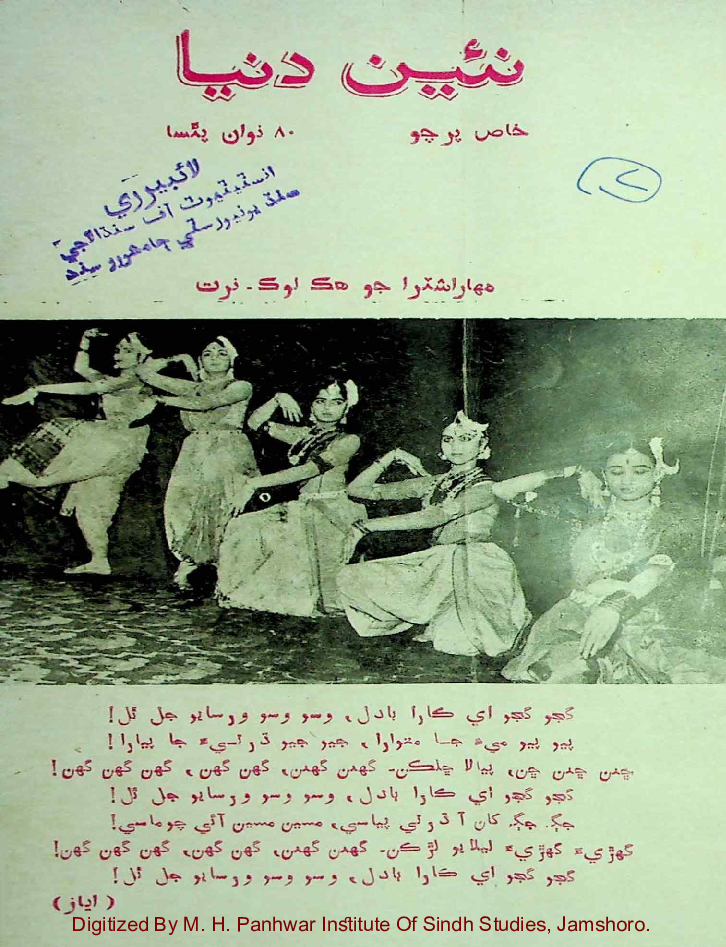 نئين دنيا
خاص پرچو
۸۰ نوان پئسا
لائبيرري
انسٽيٽيوٽ آف سنڌالاجي
سنڌ يونيورسٽي ڄامشورو سنڌ
مهاراشٽرا جو هڪ لوڪ۔ نرت
گجو گجو اي ڪارا بادل، وسو وسو ورسايو جل ٿل!
پيو پيو ميءَ جا متوارا، جيو جيو ڌرتيءَ جا پيارا!
ڇنن ڇنن ڇن، پيالا ڇلڪن۔ گهنن گهنن، گهن گهن، گهن گهن گهن!
گجو گجو اي ڪارا بادل، وسو وسو ورسايو جل ٿل!
جڳ جڳ کان آ ڌرتي پياسي، مسين مسين آئي چوماسي!
گهڙيءَ گهڙيءَ ليلايو لڙڪن۔ گهنن گهنن، گهن گهن، گهن گهن گهن!
گجو گجو اي ڪارا بادل، وسو وسو ورسايو جل ٿل!
(اياز)
Digitized By M. H. Panhwar Institute Of Sindh Studies, Jamshoro.